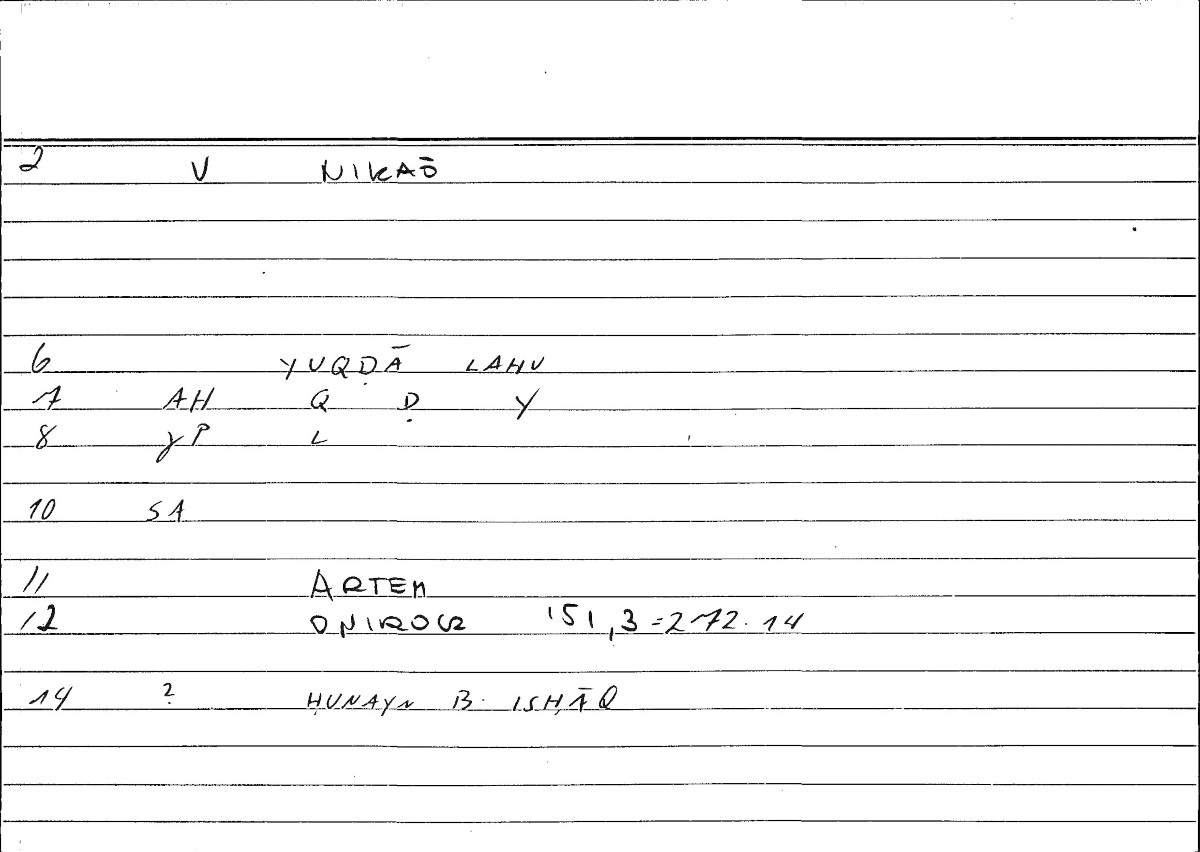 2 V NIKAŌ
6 YUQḌĀ LAHU
7 AH Q Ḍ Y
8 γP L
10 SA
11 ARTEM
12 ONIROCR 151,3=272.14
14 ? ḤUNAYN B. ISḤĀQ